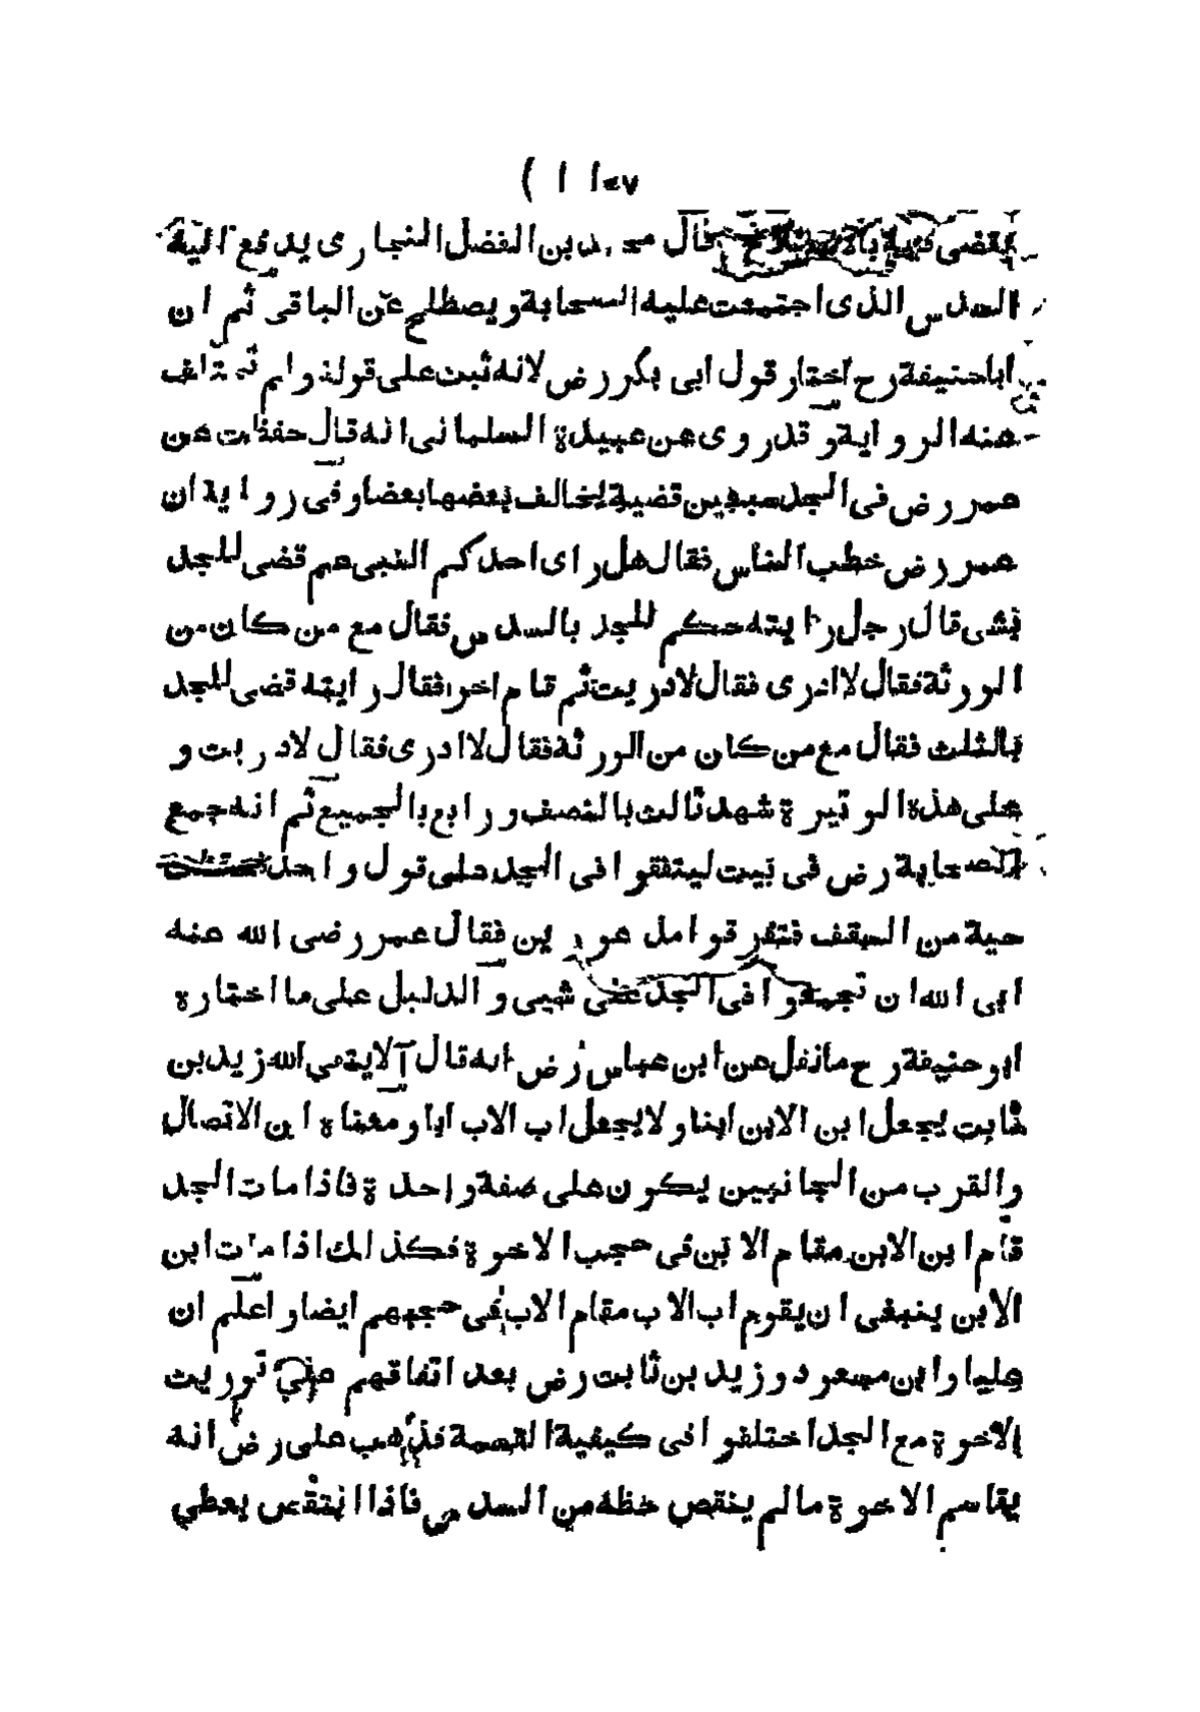 يقضى فيه بالاصطلاح قال محمد بن الفضل البخارى يدفع اليه
السدس الذى اجتمعت عليه الصحابة ويصطلح عن الباقى ثم ان
اباحنيفة رح اختار قول ابى بكر رض لانه ثبت على قوله ولم تختلف
عنه الرواية وقد روى عن عبيدة السلمانى انه قال حفظت عن
عمر رض فى الجد سبعين قضية يخالف بعضها بعضا وفى رواية ان
عمر رض خطب الناس فقال هل راى احدكم النبى عم قضى للجد
بشى قال رجل رايته حكم للجد بالسدس فقال مع من كان من
الورثة فقال لا ادرى فقال لادريت ثم قام اخر فقال رايته قضى للجد
بالثلث فقال مع من كان من الورثة فقال لا ادرى فقال لادريت و
على هذه الوتيرة شهد ثالث بالنصف ورابع بالجميع ثم انه جمع
الصحابة رض فى بيت ليتفقوا فى الجد على قول واحد فسقطت
حية من السقف فتفرقوا مذعورين فقال عمر رضى الله عنه
ابى الله ان تجمعوا فى الجد على شيى والدليل على ما اختاره
ابو حنيفة رح مانقل عن ابن عباس رض انه قال آلا يتقي الله زيد بن
ثابت يجعل ابن الابن ابنا ولا يجعل اب الاب ابا ومعناه ان الاتصال
والقرب من الجانبين يكون على صفة واحدة فاذا مات الجد
قام ابن الابن مقام الابن فى حجب الاخوة فكذلك اذا مات ابن
الابن ينبغى ان يقوم اب الاب مقام الاب فى حجبهم ايضا واعلم ان
عليا وابن مسعود وزيد بن ثابت رض بعد اتفاقهم على توريث
الاخوة مع الجد اختلفوا فى كيفية القسمة فذهب على رض انه
يقاسم الاخوة مالم ينقص حظه من السدس فاذا انتقص يعطي